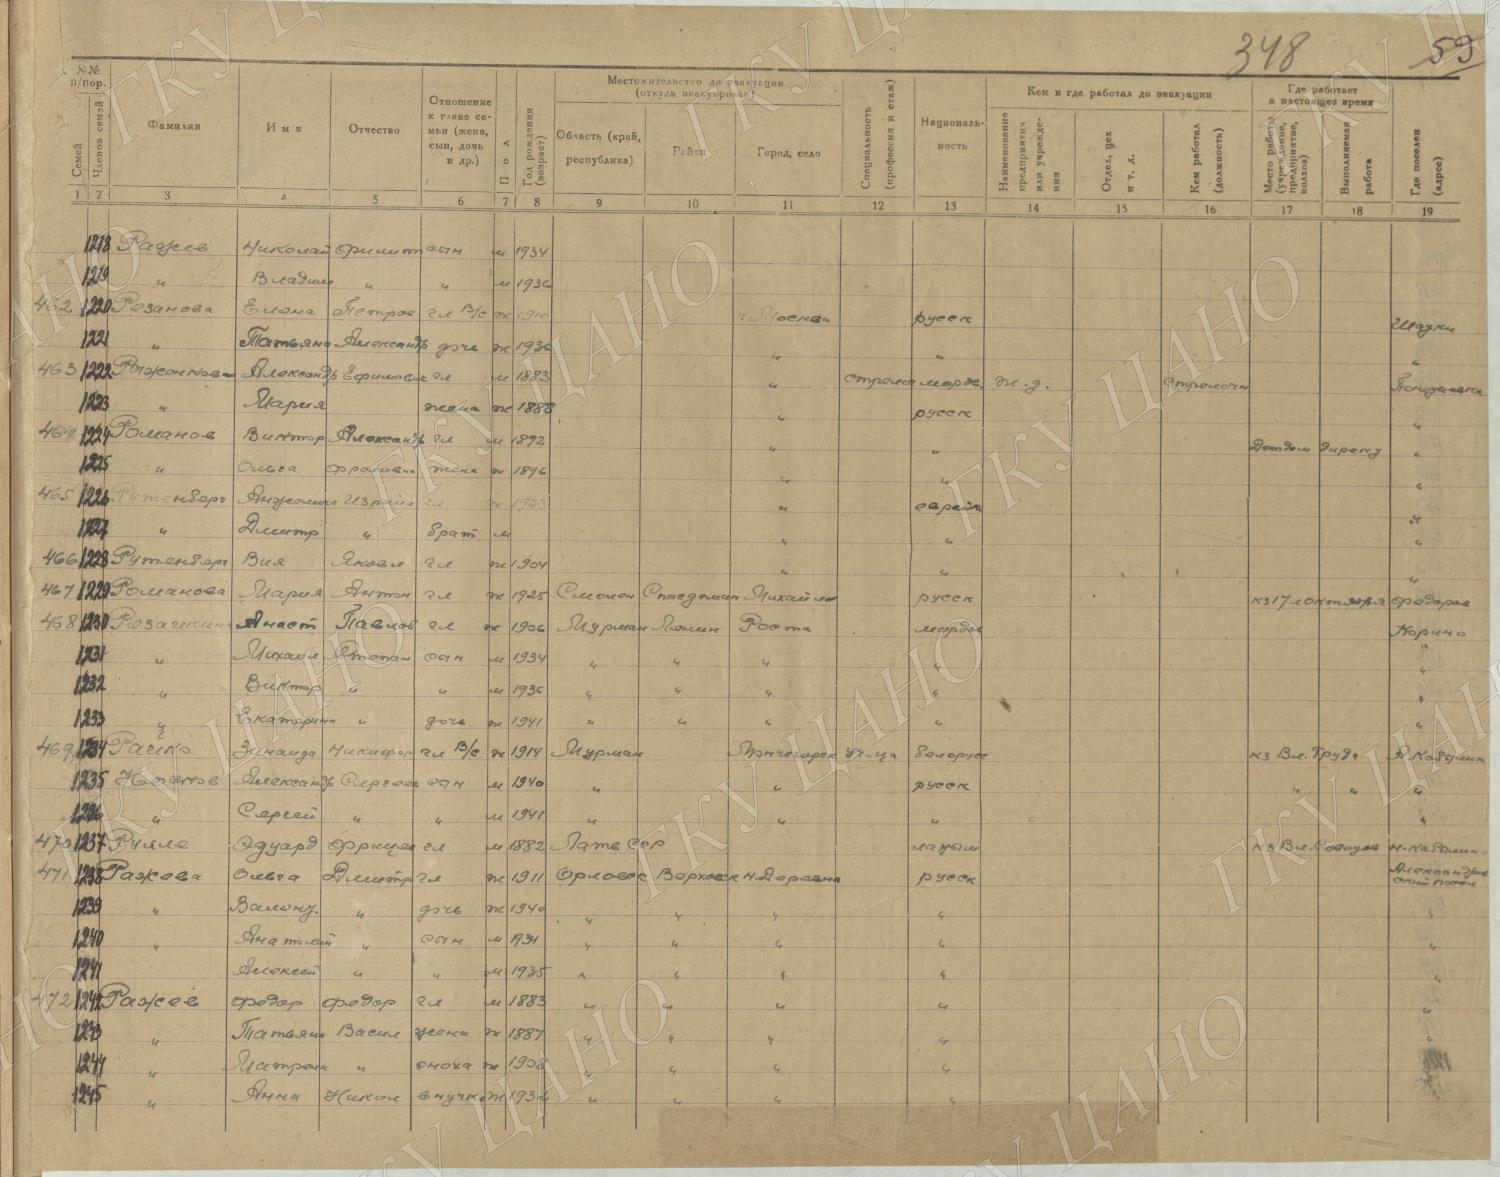 348
59
№№ п/пор.
Семей
Членов семей
Фамилия
Имя
Отчество
Отношение к главе семьи (жена, сын, дочь и др.)
Пол
Год рождения (возраст)
Местожительство до эвакуации (откуда эвакуирован)
Область (край, республика)
Район
Город, село
Специальность (профессия и стаж)
Националь-ность
Кем и где работал до эвакуации
Наименование предприятия или учрежде-ния
Отдел, цех и т. д.
Кем работал (должность)
Где работает в настоящее время
Место работы (учреждение, предприятие, колхоз)
Выполняемая работа
Где поселен (адрес)
1 2 3 4 5 6 7 8 9 10 11 12 13 14 15 16 17 18 19
1218 Ражев Николай Филипп сын м 1934
1219 " Владим " " м 1936
462 1220 Резанова Елена Петров гл В/с ж 1910 г Москва русск
1221 " Татьяна Александр дочь ж 1936 " " "
463 1222 Александр Ефимович гл м 1883 " морд. ж.д.
1223 " Мария жена ж 1888 " русск "
464 1224 Романов Виктор Александр гл м 1892 " " Детдом "
1225 " Ольга Фролови жена ж 1896 " " "
465 1226 Рутенберг гл ж 1923 " еврейк "
1227 " Дмитр " брат м " " "
466 1228 Рутенберг Вия Яковл гл ж 1904 " " "
467 1229 Романова Мария Антон гл ж 1925 Смолен Михайло русск кз 17 октября
468 1230 Анаст Павлов гл ж 1906 Мурман Ленин Роста мордов Корино
1231 " Михаил Степан сын м 1934 " " " " "
1232 " Виктор " " м 1936 " " " " "
1233 " Екатерина " дочь ж 1941 " " " " "
469 1234 Рачко Зинаида Никифор гл В/с ж 1914 Мурман Мончегорск уч-ца белорусс кз Вл. Труда
1235 Александр Сергеев сын м 1940 " " русск " " "
1236 " Сергей " " м 1941 " " " "
470 1237 Рулле Эдуард Фрицев гл м 1882 Латв ССР латыш кз Вл.
471 1238 Ражева Ольга Дмитр гл ж 1911 Орловс Верховск Н. Деревня русск Александровский посел
1239 " " дочь ж 1940 " " " " "
1240 " Анатолий " сын м 1931 " " " " "
1241 " Алексей " " м 1935 " " " " "
472 1242 Ражев Федор Федор гл м 1883 " " " " "
1243 " Татьяна Васил жена ж 1887 " " " " "
1244 " Матрена " сноха ж 1908 " " " "
1245 " Анна Никол внучка ж " " " " "
ГКУ ЦАНО